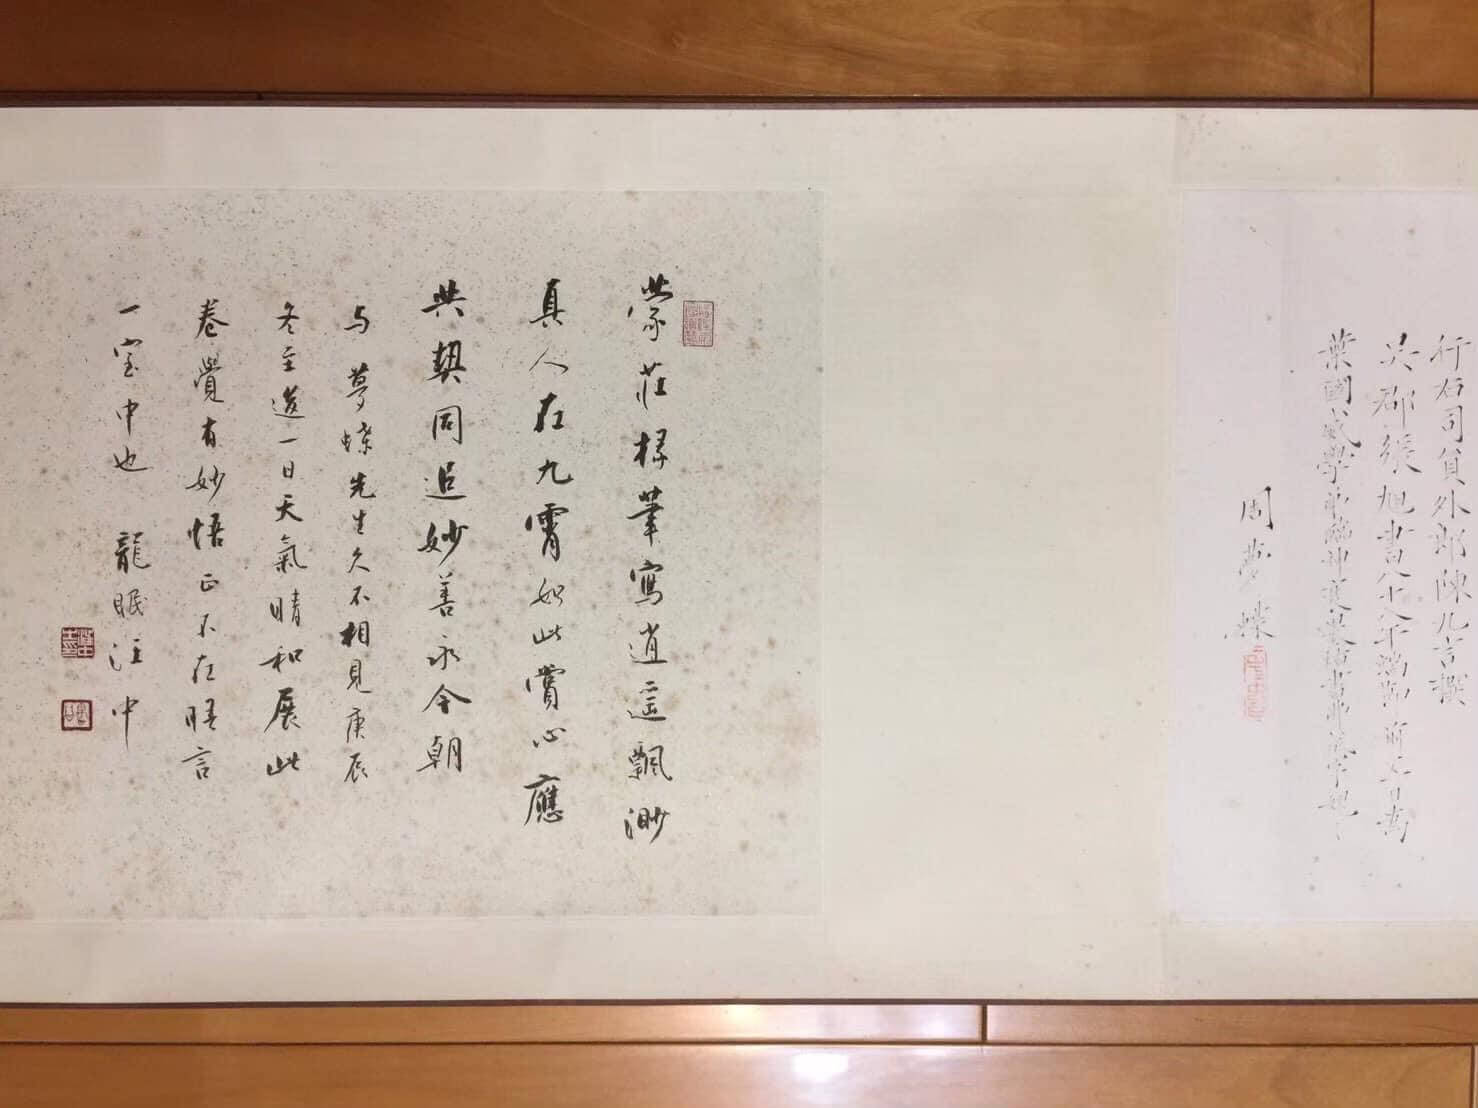 行右司員外郎陳九言撰
吳郡張旭書
葉國威學
周夢蝶
蒙莊椽筆寫逍遥飄渺
真人在九霄如此賞心應
共契同追妙善永今朝
与夢蝶先生久不相見庚辰
冬至後一日天氣晴和展此
卷覺有妙悟正不在晤言
一室中也 龍眠汪中